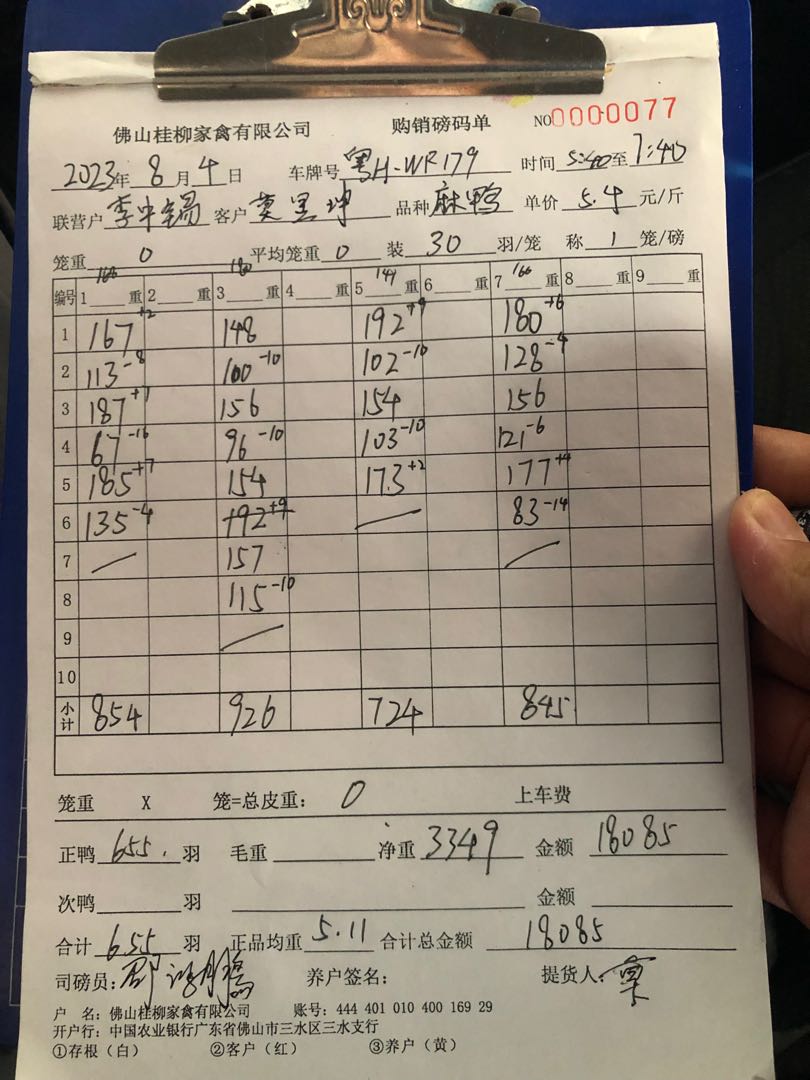 佛山桂柳家禽有限公司 购销磅码单 NO0000077
2023年8月4日 车牌号 粤H-WR179 时间 5:40至7:40
联营户 李中锡 客户 莫 坤 品种 麻鸭 单价 5.4 元/斤
笼重 0 平均笼重 0 装 30 羽/笼 称 1 笼/磅
166 180 141 166
编号 1 重 2 重 3 重 4 重 5 重 6 重 7 重 8 重 9 重
1 167+2 148 192+9 180+6
2 113-8 100-10 102-10 128-4
3 187+7 156 154 156
4 67-16 96-10 103-10 121-6
5 185+7 154 173+2 177+4
6 135-4 192+9 83-14
7 157
8 115-10
9
10
小计 854 926 724 845
笼重 X 笼=总皮重: 0 上车费
正鸭 655. 羽 毛重 净重 3349 金额 18085
次鸭 羽 金额
合计 655 羽 正品均重 5.11 合计总金额 18085
司磅员: 养户签名: 提货人:
户 名: 佛山桂柳家禽有限公司 账号: 444 401 010 400 169 29
开户行: 中国农业银行广东省佛山市三水区三水支行
①存根(白) ②客户(红) ③养户(黄)